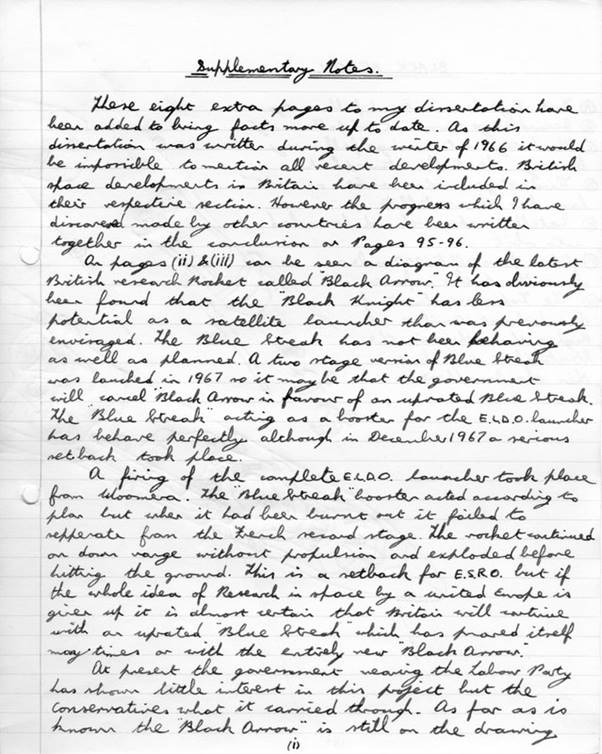 Supplementary Notes.
These eight extra pages to my dissertation have
been added to bring facts more up to date. As this
dissertation was written during the winter of 1966 it would
be impossible to mention all recent developments. British
space developments in Britain have been included in
their respective section. However the progress which I have
discovered made by other countries have been written
together in the conclusion on Pages 95-96.
On pages (ii) &(iii) can be seen a diagram of the latest
British research Rocket called "Black Arrow". It has obviously
been found that the "Black Knight" has less
potential as a satellite launcher than was prevously
envisaged. The Blue Streak has not been behaving
as well as planned. A two stage version of Blue Streak
was lauched in 1967 so it may be that the government
will cancel Black Arrow in favour of an uprated Blue Streak.
The "Blue Streak" acting as a booster for the E.L.D.O. launcher
has behave perfectly although in December 1967 a serious
set back took place.
A firing of the complete E.L.D.O. launcher took place
from Woomera. The "Blue Streak" booster acted according to
plan but when it had been burnt out it failed to
sepperate from the French second stage. The rocket continued
on down range without propulsion and exploded before
hitting the ground. This is a setback for E.S.R.O. but if
the whole idea of Research in space by a united Europe is
given up it is almost certain that Britain will continue
with an uprated "Blue Streak" which has proved itself
many times or with the entirely new "Black Arrow".
At present the government the Labour Party
has shown little interest in this project but the
Conservatives what it carried through. As far as is
known the "Black Arrow" is still on the drawing
(i)